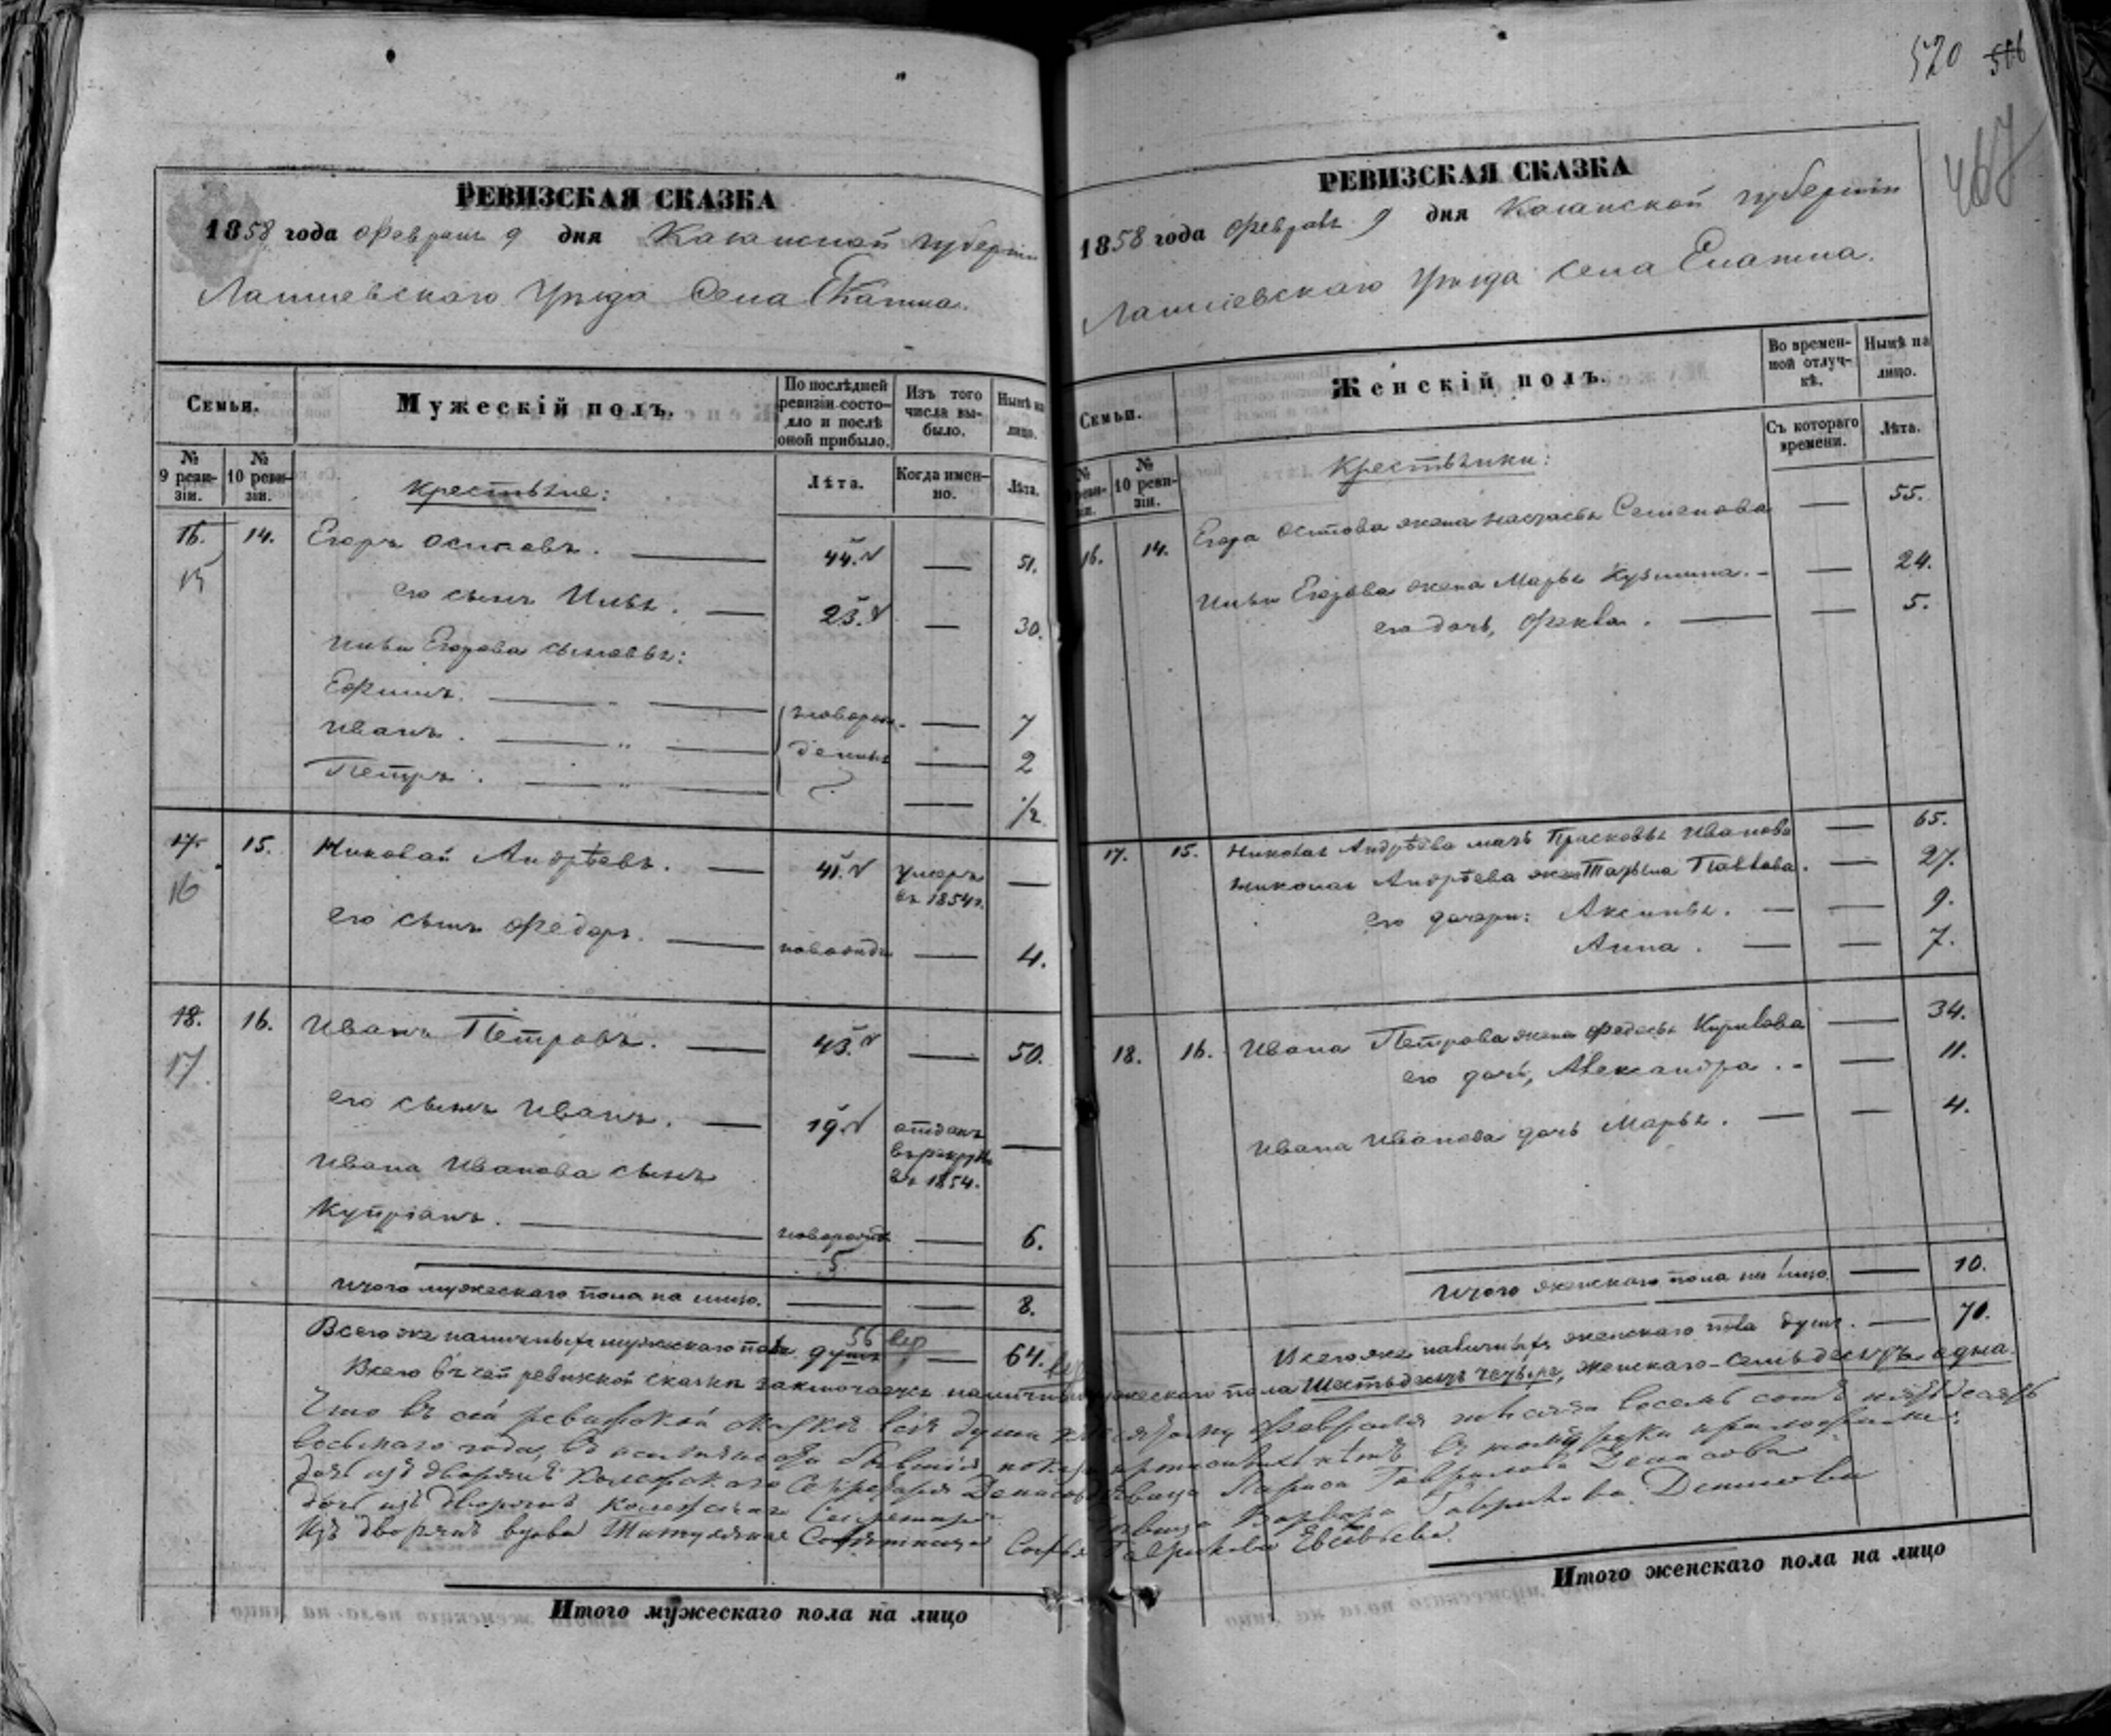 520 516
467
РЕВИЗСКАЯ СКАЗКА
1858 года Февраля 9 дня Казанской губерніи
Лаишевскаго Уѣзда Села
Семьи.
Мужескій полъ.
По послѣдней ревизіи состояло и послѣ оной прибыло.
Изъ того числа выбыло.
Нынѣ на лицо.
№ 9 ревизіи.
№ 10 ревизіи.
Лѣта.
Когда именно.
Лѣта.
Крестьяне:
16. 14. Егоръ Осиповъ. — 44. — 51.
15
его сынъ Илья. — 23. — 30.
Ильи Егорова сыновья:
Ефимъ. — новорож- — 7
Иванъ. — " — денные — 2
Петръ. — " — — 1/2
17. 15. Николай Андрѣевъ. — 41. умеръ въ 1854г. —
16
его сынъ Федоръ. — новорожд. — 4.
18. 16. Иванъ Петровъ. — 43. — 50.
17
его сынъ Иванъ. — 19. отданъ въ рекруты въ 1854. —
Ивана Иванова сынъ
Купріанъ. — новорожд. — 6.
5
Итого мужескаго пола на лицо. — — 8.
56
Всего же наличныхъ мужескаго пола душъ — 64.
Итого мужескаго пола на лицо
РЕВИЗСКАЯ СКАЗКА
1858 года Февраля 9 дня Казанской губерніи
Лаишевскаго Уѣзда Села
Семьи.
Женскій полъ.
Во временной отлучкѣ.
Нынѣ на лицо.
№ ревизіи.
№ 10 ревизіи.
Съ котораго времени.
Лѣта.
Крестьянки:
16. 14. Егора Осипова жена Настасья Семенова — 55.
Ильи Егорова жена Марья Кузмина. — — 24.
его дочь, Фекла. — — 5.
17. 15. Николая Андрѣева мать Прасковья Иванова — 65.
Николая Андрѣева жена Татьяна Павлова. — 27.
его дочери: Аксинья. — — 9.
Анна. — — 7.
18. 16. Ивана Петрова жена Федосья Кирилова — 34.
его дочь, Александра. — — 11.
Ивана Иванова дочь Марья. — — 4.
Итого женскаго пола на лицо — 10.
Всего же наличныхъ женскаго пола душъ. — 70.
Всего въ сей ревизской сказкѣ заключается наличныхъ мужескаго пола Шестьдесятъ четыре, женскаго - семьдесятъ одна.
Что въ сей ревизской сказкѣ всѣ души къ Февраля восемь сотъ пятьдесятъ
восьмаго года,
Дочь изъ дворянъ Колежскаго Секретаря девица Гаврилова Денисова
Дочь изъ дворянъ Колежскаго Секретаря девица Варвара Гаврилова Денисова
Изъ дворянъ вдова Титулярная Совѣтница Софья Гаврилова
Итого женскаго пола на лицо